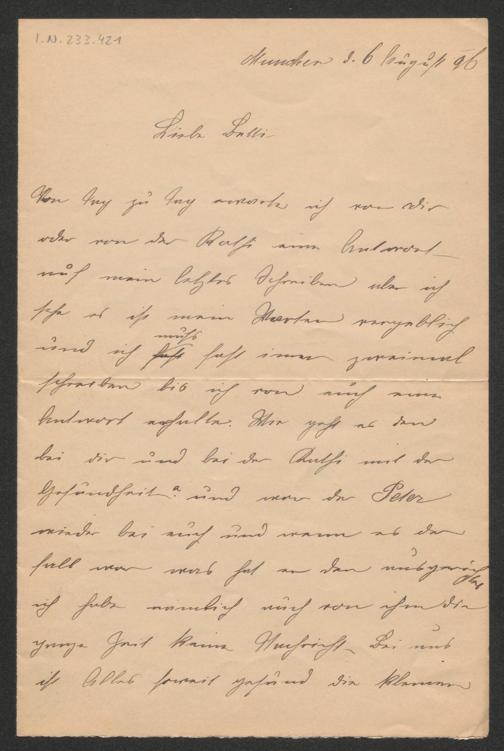 I.N. 233.421
München d. 6 August 96
Liebe Betti
Von tag zu tag erwarte ich von dir
oder von der Kathi eine Antwort
auf mein letztes Schreiben aber ich
sehe es ist mein Warten vergeblich
muß
und ich fast imer zweimal
schreiben bis ich von euch eine
Antwort erhalte. Wie geht es den
bei dir und bei der Kathi mit der
Gesundheit? und war der Peter
wieder bei euch und wenn es der
fall war was hat er den ausgerichtet
ich habe nämlich auch von ihm die
ganze Zeit keine Nachricht. Bei uns
ist Alles soweit gesund die kleinen